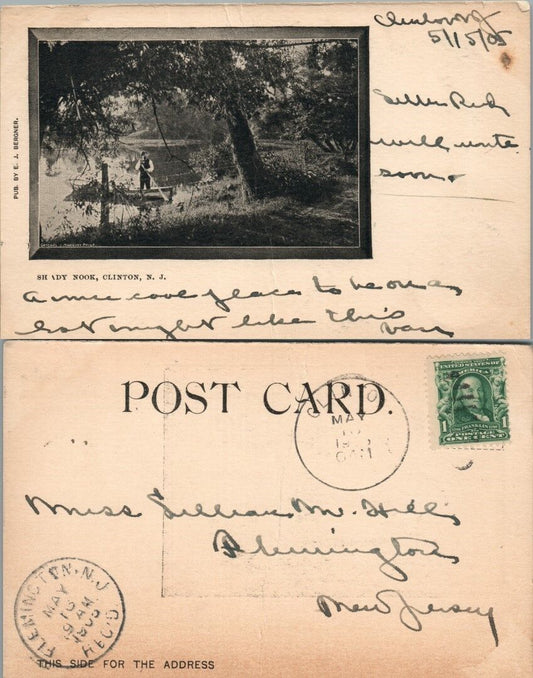 Clinton NJ
5/15/05
Letter Rec'd
will write
soon.
PUB. BY E. J. BERGNER.
SHADY NOOK, CLINTON, N. J.
a nice cool place to be on a
hot night like this
POST CARD.
MAY
UNITED STATES OF
AMERICA
1 FRANKLIN 1
POSTAGE
ONE CENT
Miss Lillian M. Hill
Flemington
New Jersey
FLEMINGTON, N.J.
MAY
16
9 AM
1905
REC'D
THIS SIDE FOR THE ADDRESS